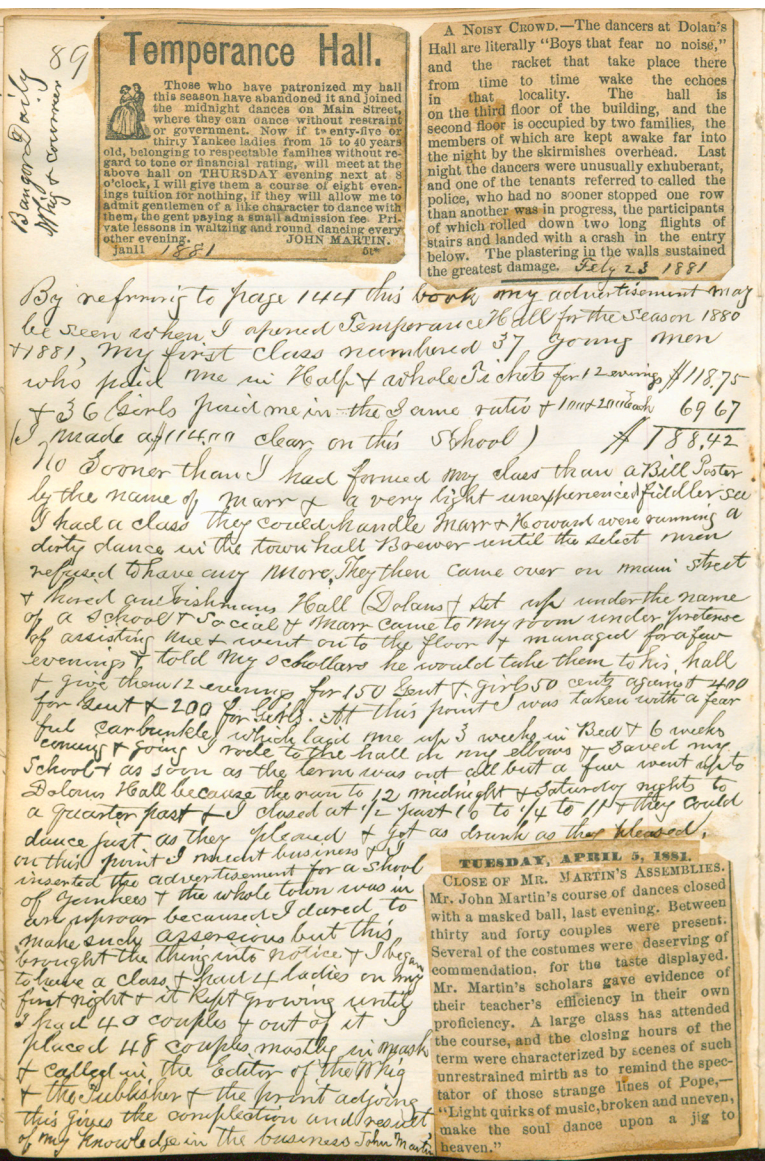 89
Bangor Daily
Whig & Courrier
Temperance Hall.
Those who have patronized my hall
this season have abandoned it and joined
the midnight dances on Main Street,
where they can dance without restraint
or government. Now if twenty-five or
thirty Yankee ladies from 15 to 40 years
old, belonging to respectable families without re-
gard to tone or financial rating, will meet at the
above hall on THURSDAY evening next at 8
o'clock, I will give them a course of eight even-
ings tuition for nothing, if they will allow me to
admit gentlemen of a like character to dance with
them, the gent paying a small admission fee. Pri-
vate lessons in waltzing and round dancing every
other evening. JOHN MARTIN.
jan11 1881 5t*
A NOISY CROWD.—The dancers at Dolan's
Hall are literally "Boys that fear no noise,"
and the racket that take place there
from time to time wake the echoes
in that locality. The hall is
on the third floor of the building, and the
second floor is occupied by two families, the
members of which are kept awake far into
the night by the skirmishes overhead. Last
night the dancers were unusually exhuberant,
and one of the tenants referred to called the
police, who had no sooner stopped one row
than another was in progress, the participants
of which rolled down two long flights of
stairs and landed with a crash in the entry
below. The plastering in the walls sustained
the greatest damage. Feby 23 1881
By refrring to page 144 this book my advertisement may
be seen when I opened Temperance Hall for the season 1880
& 1881, my first class numbered 37 young men
who paid me in Half & whole Tickets for 12 evenings $118.75
& 36 Girls paid me in the Same ratio & 100 & 200 Each 69 67
(I made a $114.00 clear on this School) $188.42
No Sooner than I had formed my class than a Bill Poster
by the name of Marr & a very light unexperienced fiddler saw
I had a class they could handle Marr & Howard were running a
dirty dance in the town hall Brewer until the select men
refused to have any more, They then came over on main street
& hired an Irishmans Hall (Dolans) & set up under the name
of a school & Social & Marr came to my room under pretense
of assisting me & went on to the floor & managed for a few
evenings & told my schollars he would take them to his hall
& give them 12 evenings for 150 Gent & girls 50 cents against 400
for Gent & 200 for Girls. At this point I was taken with a fear
ful carbunkle which laid me up 3 weeks in Bed & 6 weeks
coming & going I rode to the hall on my elbows & Saved my
School & as soon as the term was out all but a few went up to
Dolans Hall because the ran to 12 midnight & Saturday nights to
a quarter past & I closed at 1/2 past 10 to 1/4 to 11 & they could
dance just as they pleased & get as drunk as they pleased.
on this point I meant business & I
inserted the advertisement for a School
of Yankees & the whole town was in
an uproar because I dared to
make such assersions but this
brought the thing into notice & I began
to have a class & had 4 ladies on my
first night & it Kept growing until
I had 40 couples & out of it I
placed 48 couples mostly in mask
& called in the Editor of the Whig
& the Publisher & the print adjoing
this gives the complection and result
of my knowledge in the business John Martin
TUESDAY, APRIL 5, 1881.
CLOSE OF MR. MARTIN'S ASSEMBLIES.
Mr. John Martin's course of dances closed
with a masked ball, last evening. Between
thirty and forty couples were present.
Several of the costumes were deserving of
commendation, for the taste displayed.
Mr. Martin's scholars gave evidence of
their teacher's efficiency in their own
proficiency. A large class has attended
the course, and the closing hours of the
term were characterized by scenes of such
unrestrained mirth as to remind the spec-
tator of those strange lines of Pope,—
"Light quirks of music, broken and uneven,
make the soul dance upon a jig to
heaven."